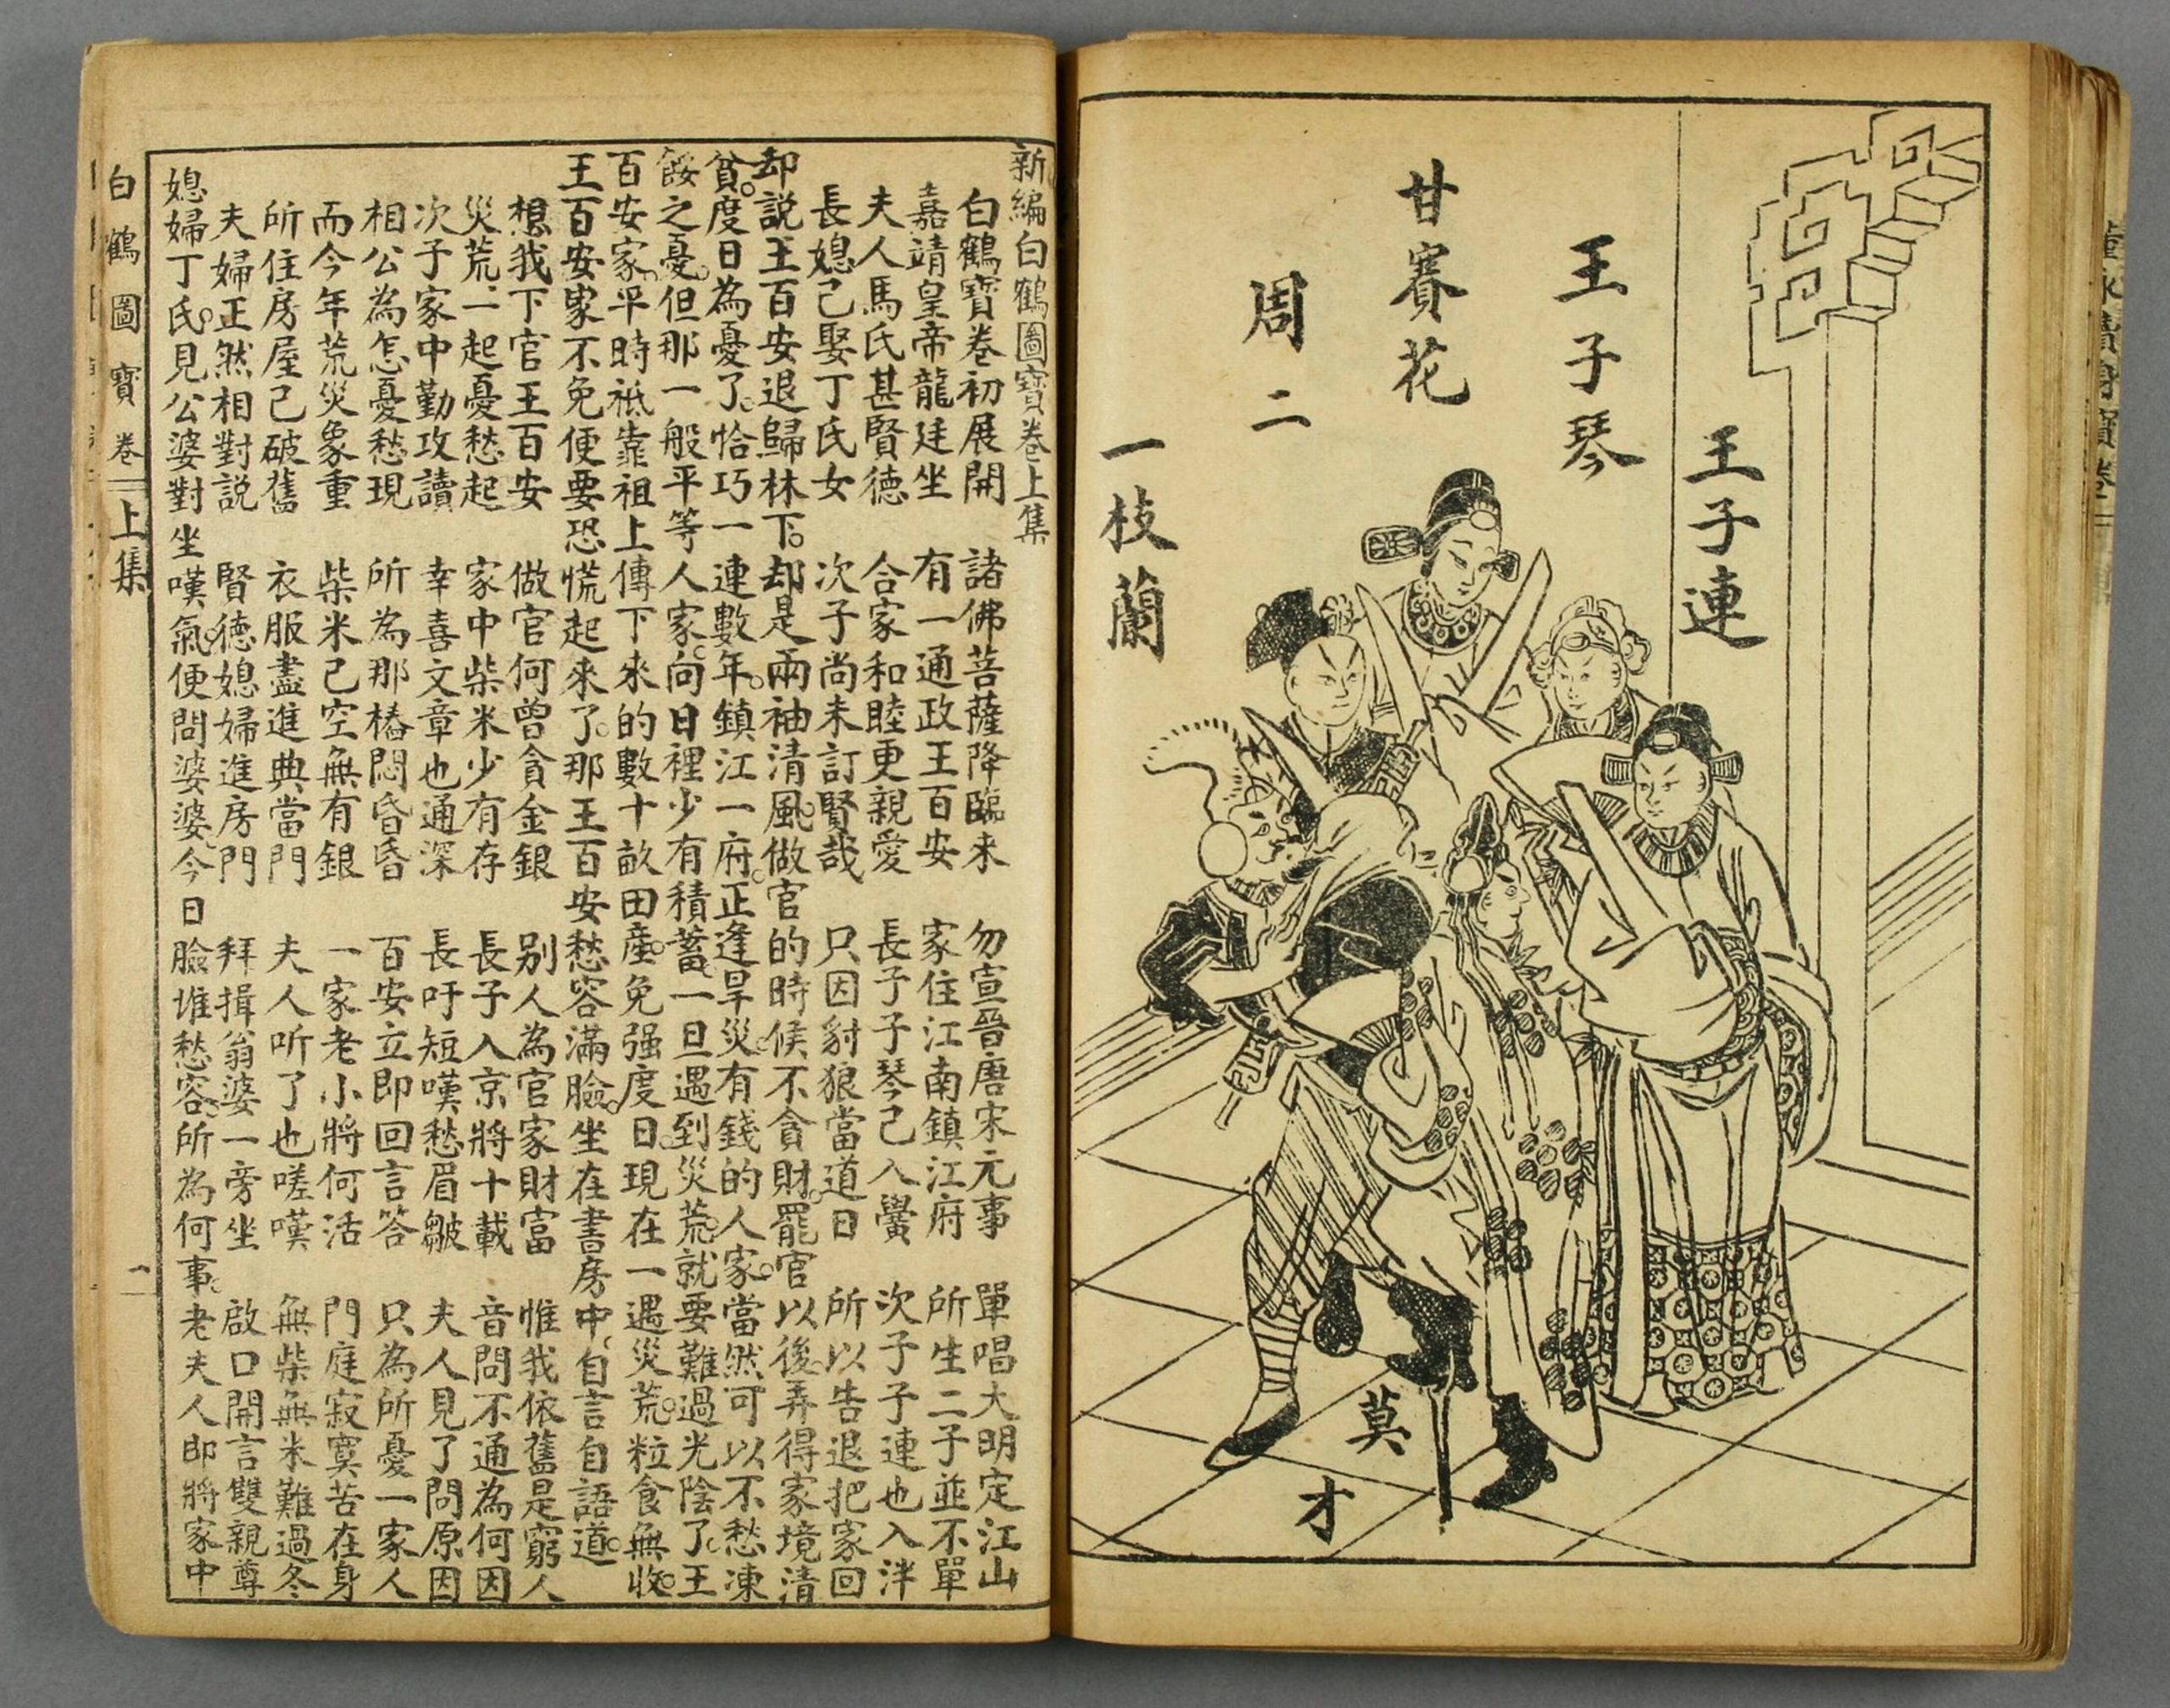 王子連
王子琴
甘賽花
周二
一枝蘭
莫才
新編白鶴圖寶卷上集
白鶴寶卷初展開　諸佛菩薩降臨來　勿宣晉唐宋元事　單唱大明定江山
嘉靖皇帝龍廷坐　有一通政王百安　家住江南鎮江府　所生二子並不單
夫人馬氏甚賢德　合家和睦更親愛　長子子琴己入黌　次子子連也入泮
長媳己娶丁氏女　次子尚未訂賢哉　只因豺狼當道日　所以告退把家回
却説王百安退歸林下。却是兩袖清風。做官的時候不貪財。罷官以後。弄得家境清
貧。度日為憂了。恰巧一連數年。鎮江一府。正逢旱災。有錢的人家。當然可以不愁凍
餒之憂。但那一般平等人家。向日裡少有積蓄。一旦遇到災荒。就要難過光陰了。王
百安家。平時祗靠祖上傳下來的數十畝田產。免强度日。現在一遇災荒。粒食無收。
王百安家不免便要恐慌起來了。那王百安愁容滿臉。坐在書房中。自言自語道。
想我下官王百安　做官何曾貪金銀　别人為官家財富　惟我依舊是窮人
災荒一起憂愁起　家中柴米少有存　長子入京將十載　音問不通為何因
次子家中勤攻讀　幸喜文章也通深　長吁短嘆愁眉皺　夫人見了問原因
相公為怎憂愁現　所為那樁悶昏昏　百安立即回言答　只為所憂一家人
而今年荒災象重　柴米己空無有銀　一家老小將何活　門庭寂寞苦在身
所住房屋己破舊　衣服盡進典當門　夫人听了也嗟嘆　無柴無米難過冬
夫婦正然相對説　賢德媳婦進房門　拜揖翁婆一旁坐　啟口開言雙親尊
媳婦丁氏。見公婆對坐嘆氣。便問婆婆。今日臉堆愁容。所為何事。老夫人即將家中
白鶴圖寶卷　上集
一